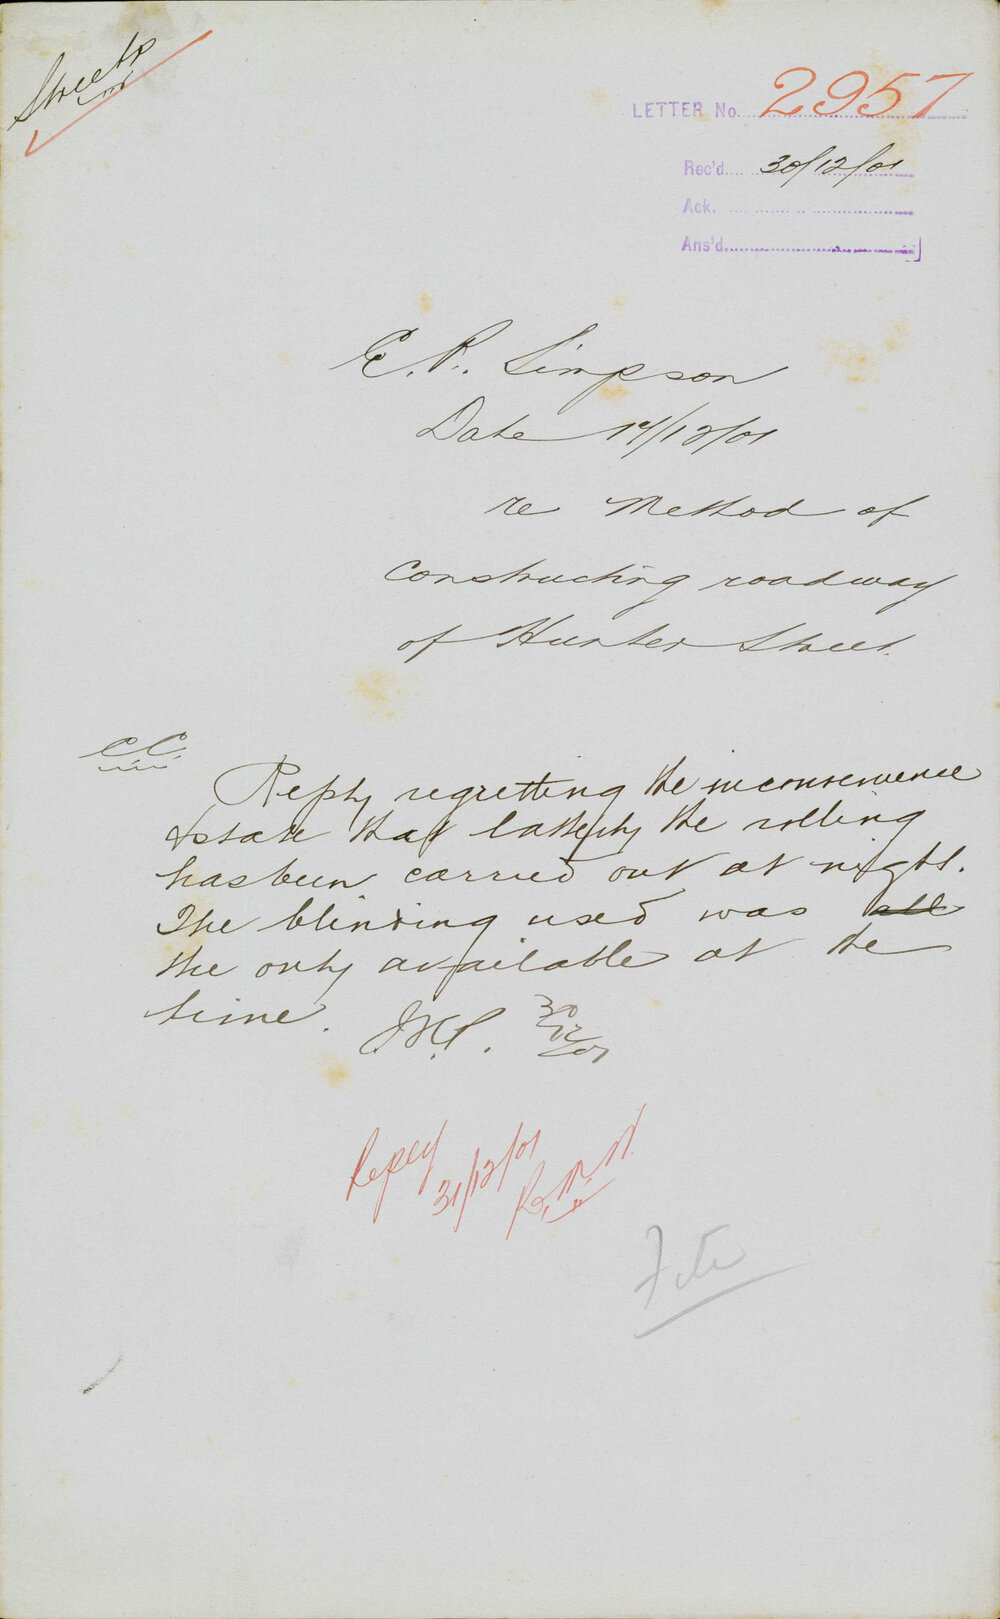 Streets
LETTER No. 2957
Rec'd. 30/12/01
Ack.
Ans'd.
E. P. Simpson
Date 17/12/01
re Method of
constructing roadway
of Hunter Street.
C.C.
Reply regretting the inconvenience
& state that latterly the rolling
has been carried out at night.
The blinding used was all
the only available at the
time.
30/12/01
Reply
31/12/01
File